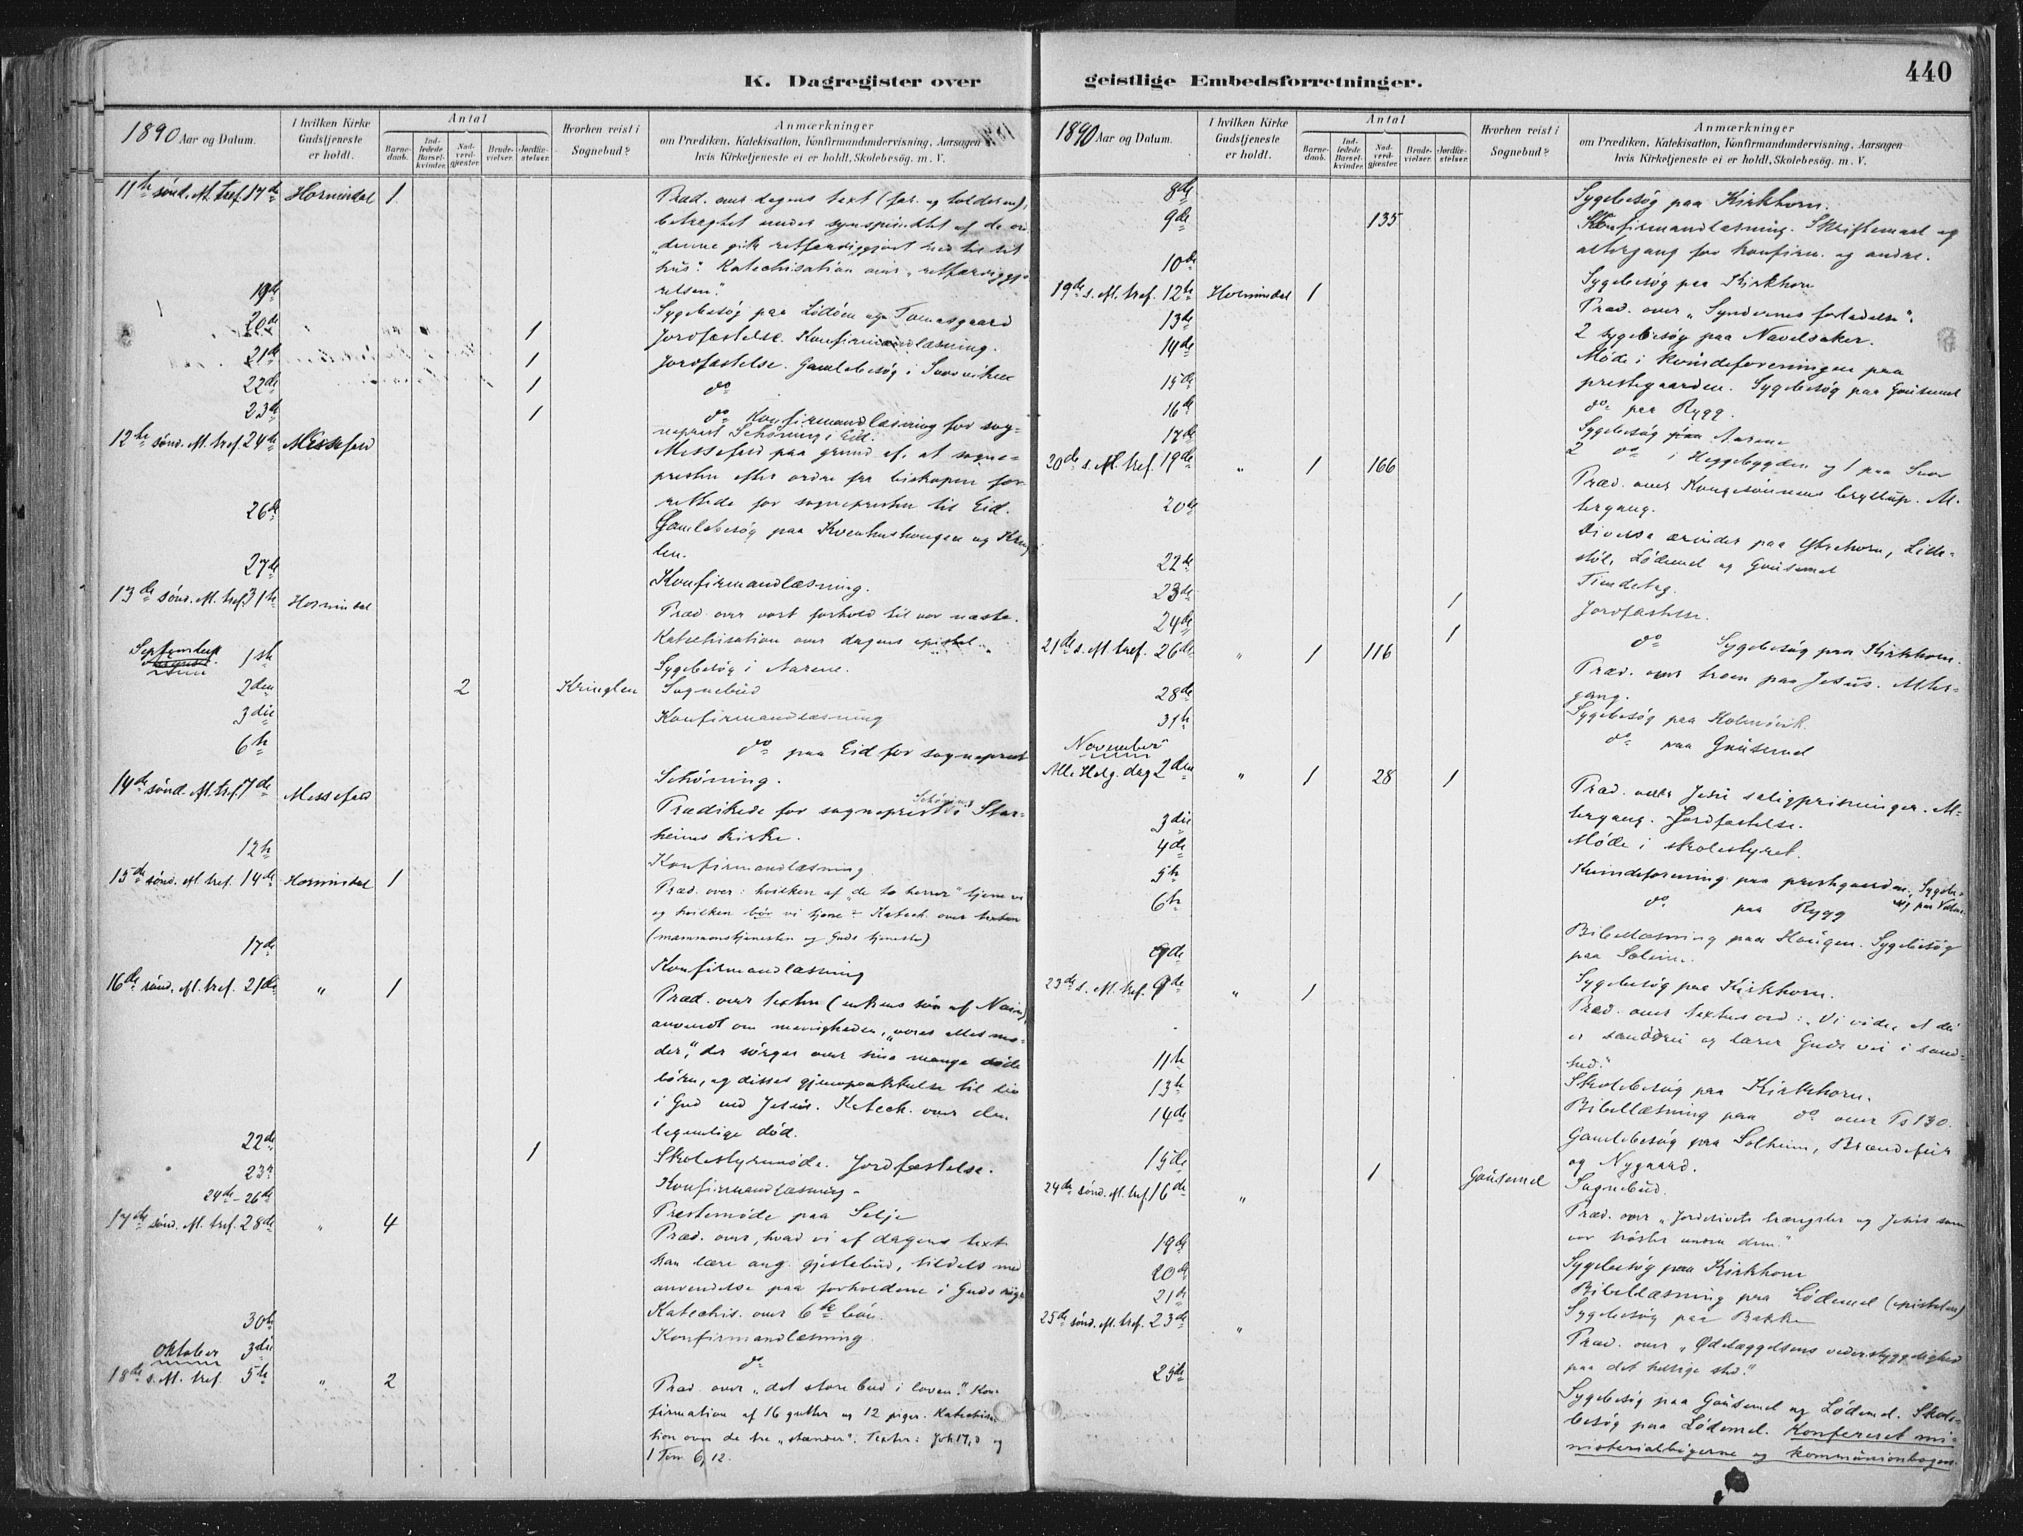 K. Dagregister over
1890 Aar og Datum.
I hvilken Kirke Gudstjeneste er holdt.
Antal
Barnedaab.
Indledede Barselkvinder.
Nadverdgjester.
Brudevielser.
Jordfæstelser.
Hvorhen reist i Sognebud?
Anmærkninger
om Prædiken, Katekisation, Konfirmandundervisning, Aarsagen
hvis Kirketjeneste ei er holdt, Skolebesøg. m. V.
11te sønd. e. tref. 17de Hornindal 1 Præd. over dagens text (far. og tolderen),
betragtet under synspunktet af de ord
"denne gik retfærdiggjort ned til sit
hus". Katechisation over "retfærdiggjø-
relsen".
19de Sygebesøg paa Lødøen og Tomasgaard
20de 1 Jordfæstelse. Konfirmandlæsning.
21de 1 Jordfæstelse. Gamlebesøg i
22de 1 do
23de 1 do Konfirmandlæsning for sog-
neprest Schøning i Eid.
12te sønd. e. tref. 24de Messefald Messefald paa grund af, at sogne-
presten efter ordre fra biskopen for-
rettede for sognepresten til Eid.
26de Gamlebesøg paa og Kring-
len.
27de Konfirmandlæsning.
13de sønd. e. tref. 31te Hornindal Præd. over vort forhold til vor næste.
Katechisation over dagens epistel.
September
August
1ste Sygebesøg i Aarene.
2den 2 Kringlen Sognebud
3die Konfirmandlæsning
6te do paa Eid for sogneprest
Schøning.
14de sønd. e. tref. 7de Messefald Prædikede for sogneprest Schøning i Star-
heims kirke.
12te Konfirmandlæsning
15de sønd. e. tref. 14de Hornindal 1 Præd. over: hvilken af "de to herrer" tjene vi
og hvilken bør vi tjene? Katech. over texten
(mammonstjenesten og Guds tjeneste)
17de Konfirmandlæsning
16de sønd. e. tref. 21de " 1 Præd. over texten (enkens søn af Nain),
anvendt om menigheden, "vores alles mo-
der", der sørger over sine mange døde
børn, og disses gjenopvækkelse til liv
i Gud ved Jesus. Katech. over den
legemlige død.
22de 1 Skolestyremøde. Jordfæstelse.
23de Konfirmandlæsning
24de-26de Prestemøde paa Selje
17de sønd. e. tref. 28de " 4 Præd. over, hvad vi af dagens text
kan lære ang. gjestebud, tildels med
anvendelse paa forholdene i Guds rige
Katechis. over 6te bøn.
30te Konfirmandlæsning
Oktober 3die do
18de s. e. tref. 5te " 2 Præd. over "det store bud i loven". Kon-
firmation af 16 gutter og 12 piger. Katechisa-
tion over de tre "stænder". Texter: Joh 17,3 og
1 Tim 6,12.
geistlige Embedsforretninger.
440
1890 Aar og Datum.
I hvilken Kirke Gudstjeneste er holdt.
Antal
Barnedaab.
Indledede Barselkvinder.
Nadverdgjester.
Brudevielser.
Jordfæstelser.
Hvorhen reist i Sognebud?
Anmærkninger
om Prædiken, Katekisation, Konfirmandundervisning, Aarsagen
hvis Kirketjeneste ei er holdt, Skolebesøg. m. V.
8de Sygebesøg paa Kirkhorn.
9de 135 Konfirmandlæsning. Skriftemaal og
altergang for konfirm. og andre.
10de Sygebesøg paa Kirkhorn
19de s. e. tref. 12te Hornindal 1 Præd. over "Syndernes forladelse".
13de 2 sygebesøg paa Navelsaker.
14de Møde i kvindeforeningen paa
prestegaarden. Sygebesøg paa Gausemel
15de do paa Rygg.
16de Sygebesøg paa Aarene
17de 2 do i Heggebygden og 1 paa Svor
20de s. e. tref. 19de " 1 166 Præd. over Kongesønnens bryllup. Al-
tergang.
20de Diverse ærinder paa Ytrehorn, Lille-
støl, Lødemel og Gausemel
22de Tiendetag.
23de 1 Jordfæstelse.
24de 1 do Sygebesøg paa Kirkhorn.
21de s. e. tref. 26de " 1 116 Præd. over troen paa Jesus. Alter-
gang.
28de Sygebesøg paa Holmøvik
31te do paa Gausemel
November
Alle Helg. dag 2den " 1 28 1 Præd. over Jesu saligprisninger. Al-
tergang. Jordfæstelse.
3die Møde i skolestyret.
4de Kvindeforening paa prestegaarden. Sygebe-
søg paa
5te do paa Rygg
6te Bibellæsning paa Haugen. Sygebesøg
paa Solem.
Sygebesøg paa Kirkhorn.
23de s. e. tref. 9de " 1 Præd. over textens ord: "Vi vide, at du
er sanddru og lærer Guds vei i sand-
hed."
11te Skolebesøg paa Kirkhorn.
13te Bibellæsning paa do over Ps 130.
14de Gamlebesøg paa Solheim, Brændefeir
og Nygaard.
15de 1 Gausemel Sognebud.
24de sønd. e. tref 16de " Præd. over "Jordelivets trængsler og Jesus som
vor trøster under dem."
19de Sygebesøg paa Kirkhorn
20de Bibellæsning paa Lødemel (epistelen)
21de Sygebesøg paa Bakke
25de sønd. e. tref. 23de " Præd. over "Ødelæggelsens vederstyggelighed
paa det hellige sted."
25de Sygebesøg paa Gausemel og Lødemel. Skole-
besøg paa Lødemel. Konfereret mi-
nisterialbøgerne og kommunionbogen.